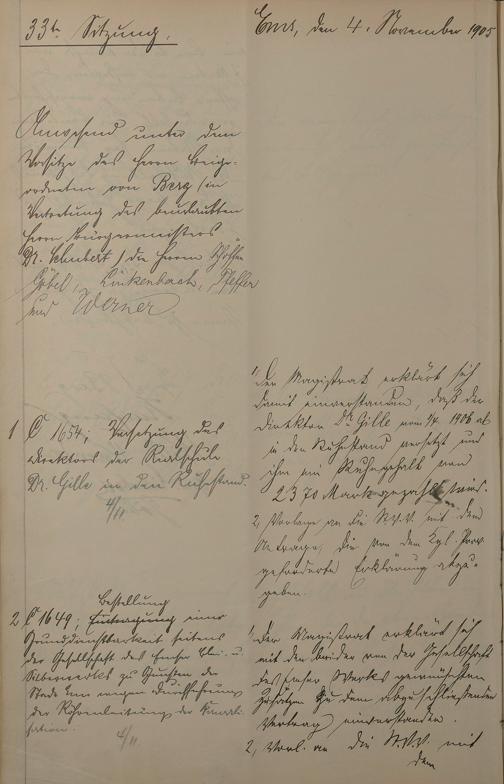 33te Sitzung.
Ems, den 4. November 1905
Anwesend unter dem
Vorsitze des Herrn Beige-
ordneten von Berg (in
Vertretung des beurlaubten
Herrn Bürgermeisters
Dr. Schubert) die Herren Schöffen
Göbel, Linkenbach, Pfeffer
und Werner.
1 C 1654; Versetzung des
Direktors der Realschule
Dr. Gille in den Ruhestand.
4/11
1, Der Magistrat erklärt sich
damit einverstanden, daß der
Direktor Dr. Gille vom 1/4. 1906 ab
in den Ruhestand versetzt und
ihm ein Ruhegehalt von
2370 Mark gezahlt wird.
2, Vorlage an die St.V.V. mit dem
Antrage, die von dem Kgl. Prov.
geforderte Erklärung abzu-
geben.
2 C 1649; Bestellung einer
Grunddienstbarkeit seitens
der Gesellschaft des Emser Blei- u.
Silberwerks zu Gunsten der
Stadt Ems wegen Durchführung
der Röhrenleitung der Kanali-
sation.
4/11
1, Der Magistrat erklärt sich
mit den beiden von der Gesellschaft
des Emser Werks gewünschten
Zusätzen zu dem abzuschließenden
Vertrag einverstanden.
2, Vorl. an die St.V.V. mit
dem